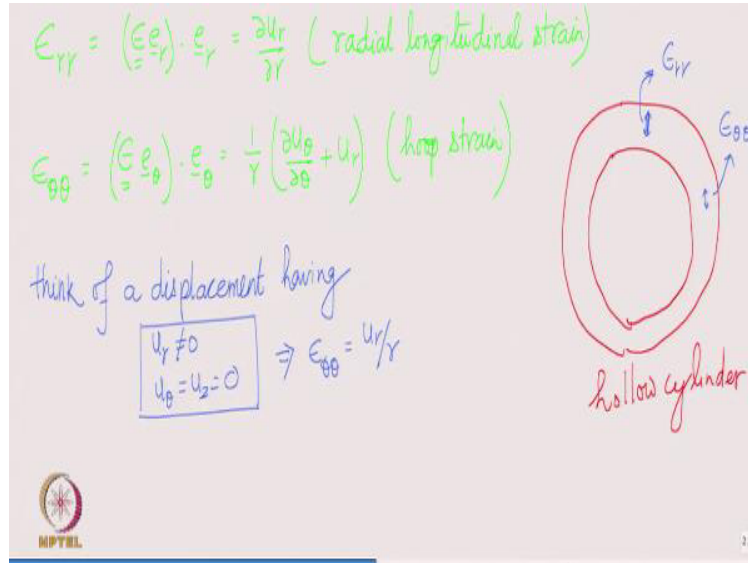 ϵ_rr = (ϵ e_r) · e_r = ∂u_r/∂r (radial longitudinal strain)
ϵ_rr
ϵ_θθ = (ϵ e_θ) · e_θ = 1/r (∂u_θ/∂θ + u_r) (hoop strain)
ϵ_θθ
think of a displacement having
u_r ≠ 0
u_θ = u_z = 0
⇒ ϵ_θθ = u_r/r
hollow cylinder
NPTEL
2